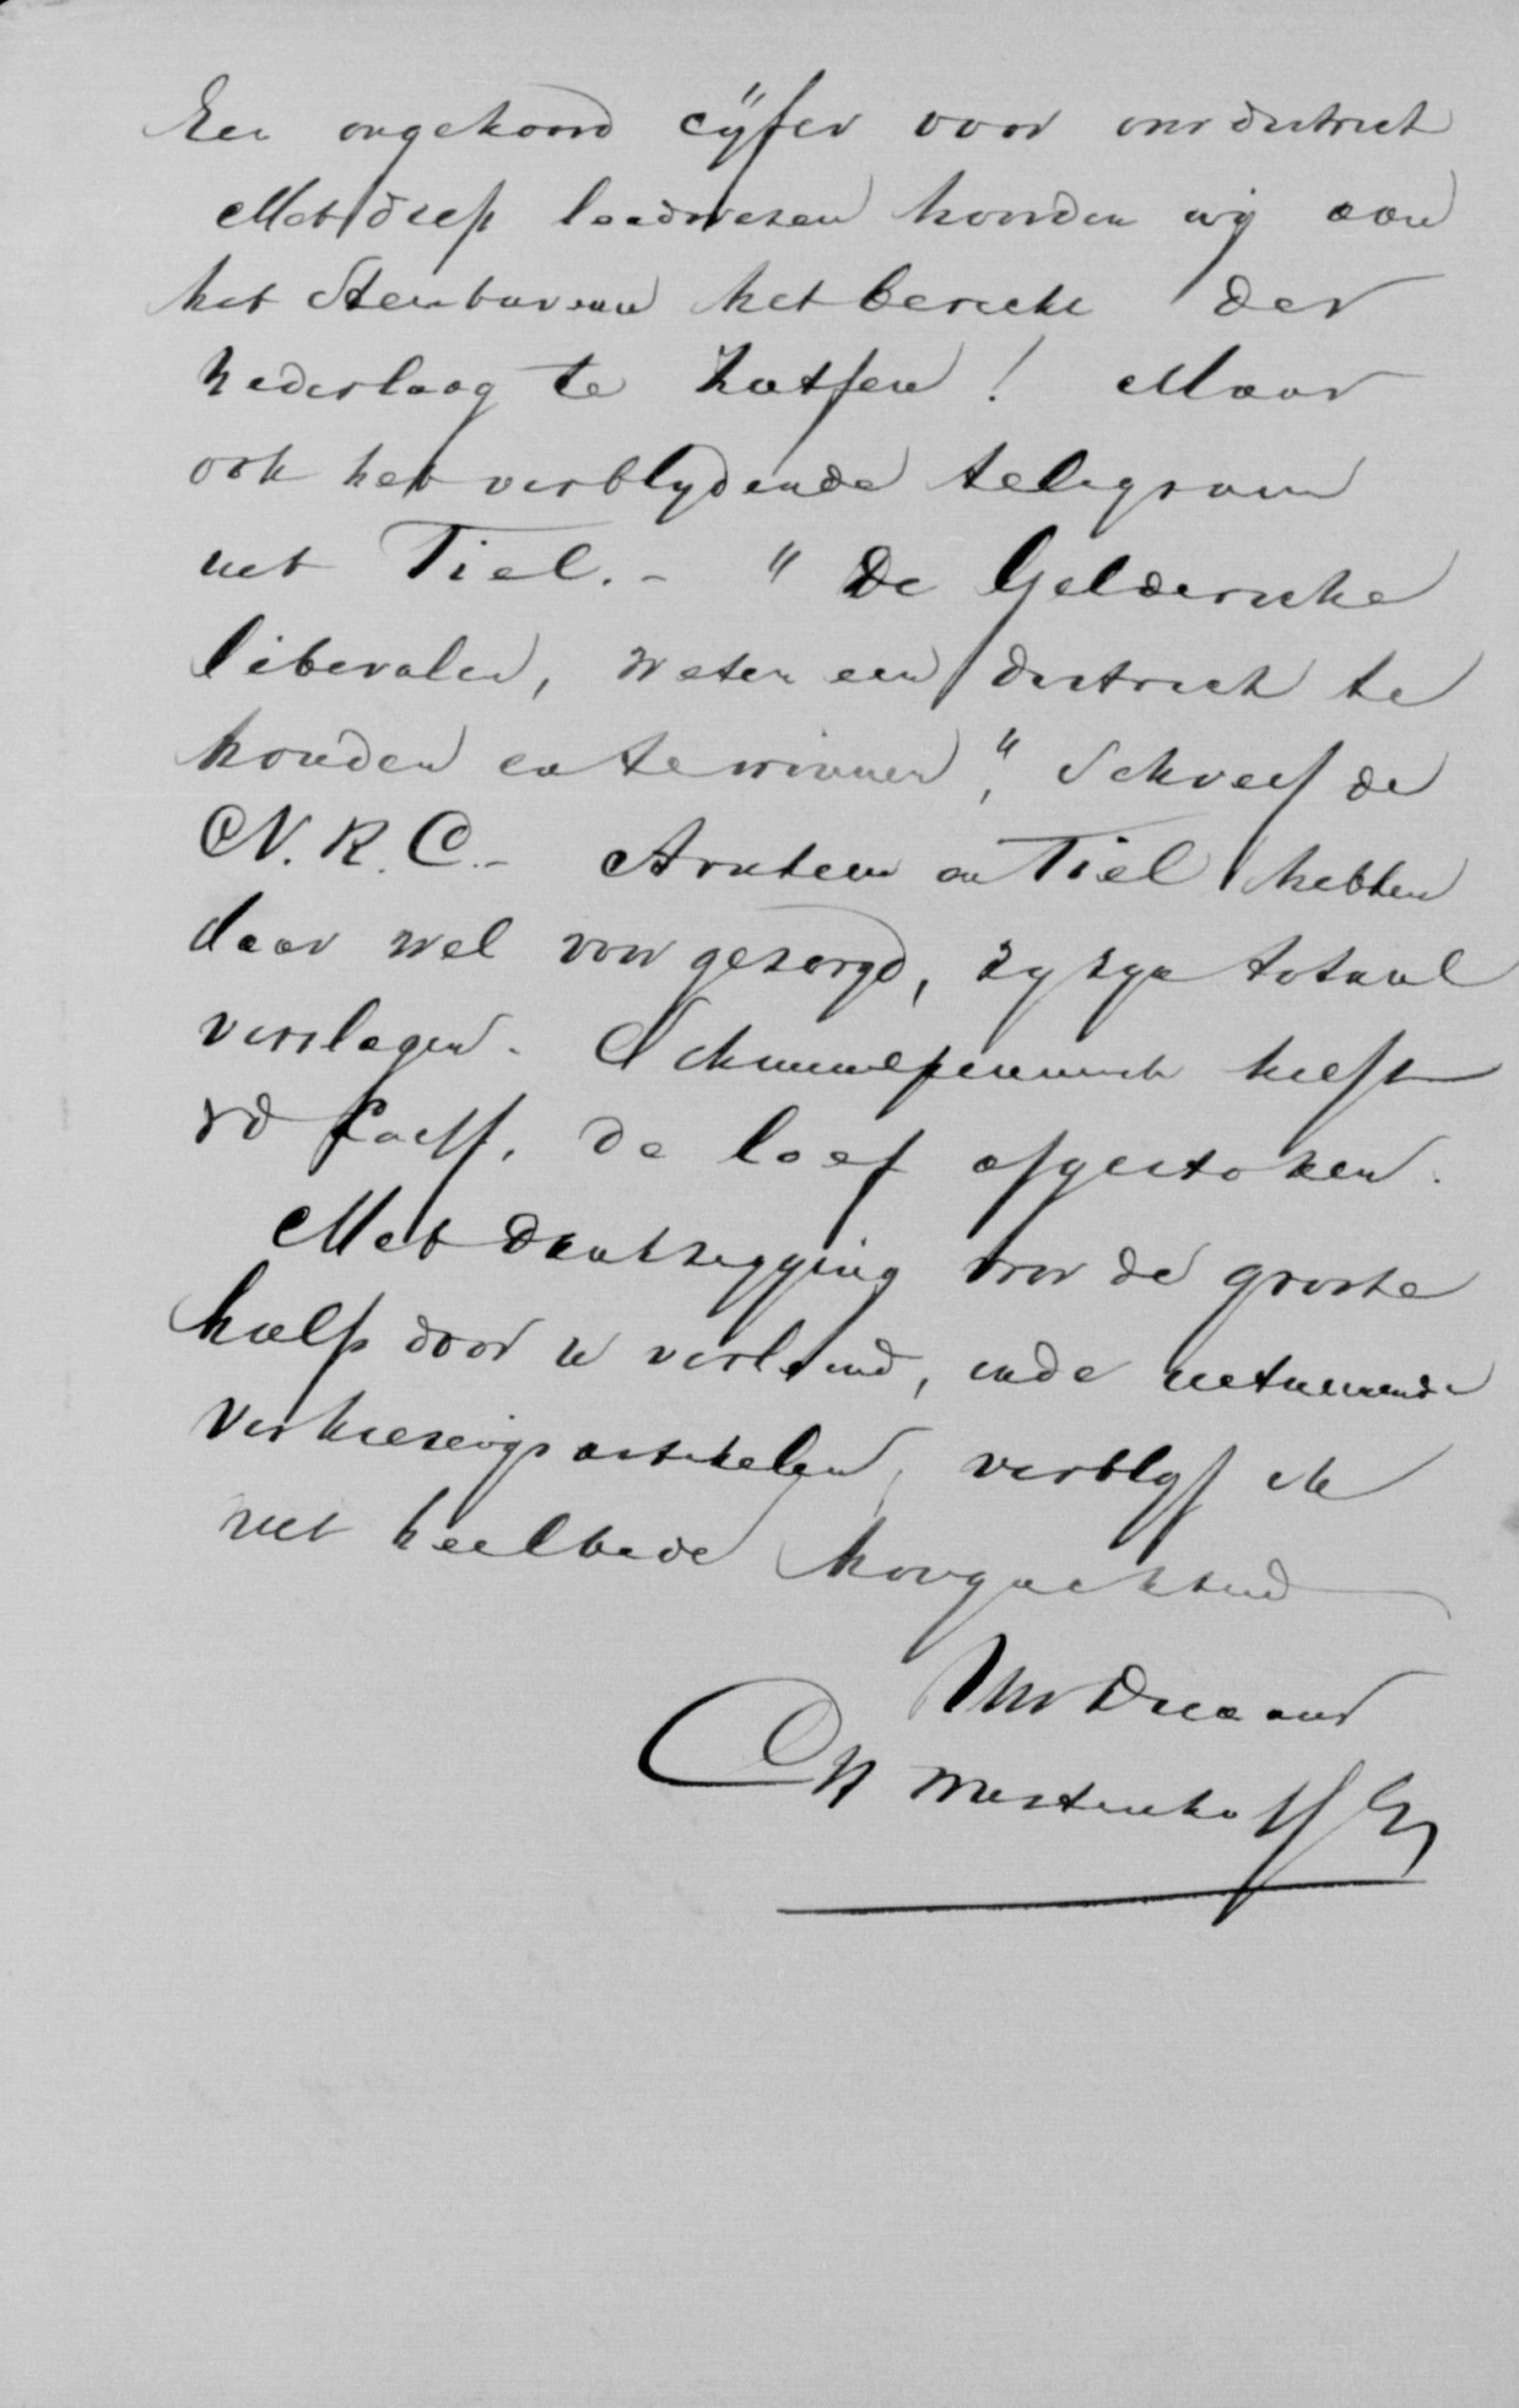 Een ongehoord cijfer voor ons district
Met diep leedwezen hoorden wij aan
het Stembureau het bericht der
nederlaag te Zutfen! Maar
ook het verblydende telegram
uit Tiel. - "De Geldersche
liberalen, weten een district te
houden en te winnen," schreef de
N.R.C. - Arnhem en Tiel hebben
daar wel voor gezorgd, zy zyn totaal
verslagen. Schimmelpenninck heeft
de loef afgestoken.
Met dankzegging voor de groote
hulp door u verleend, in de uitnemende
verkiezingsartikelen, verblyf ik
met heilbede hoogachtend
Uw Dw Dienaar
Westenhoff